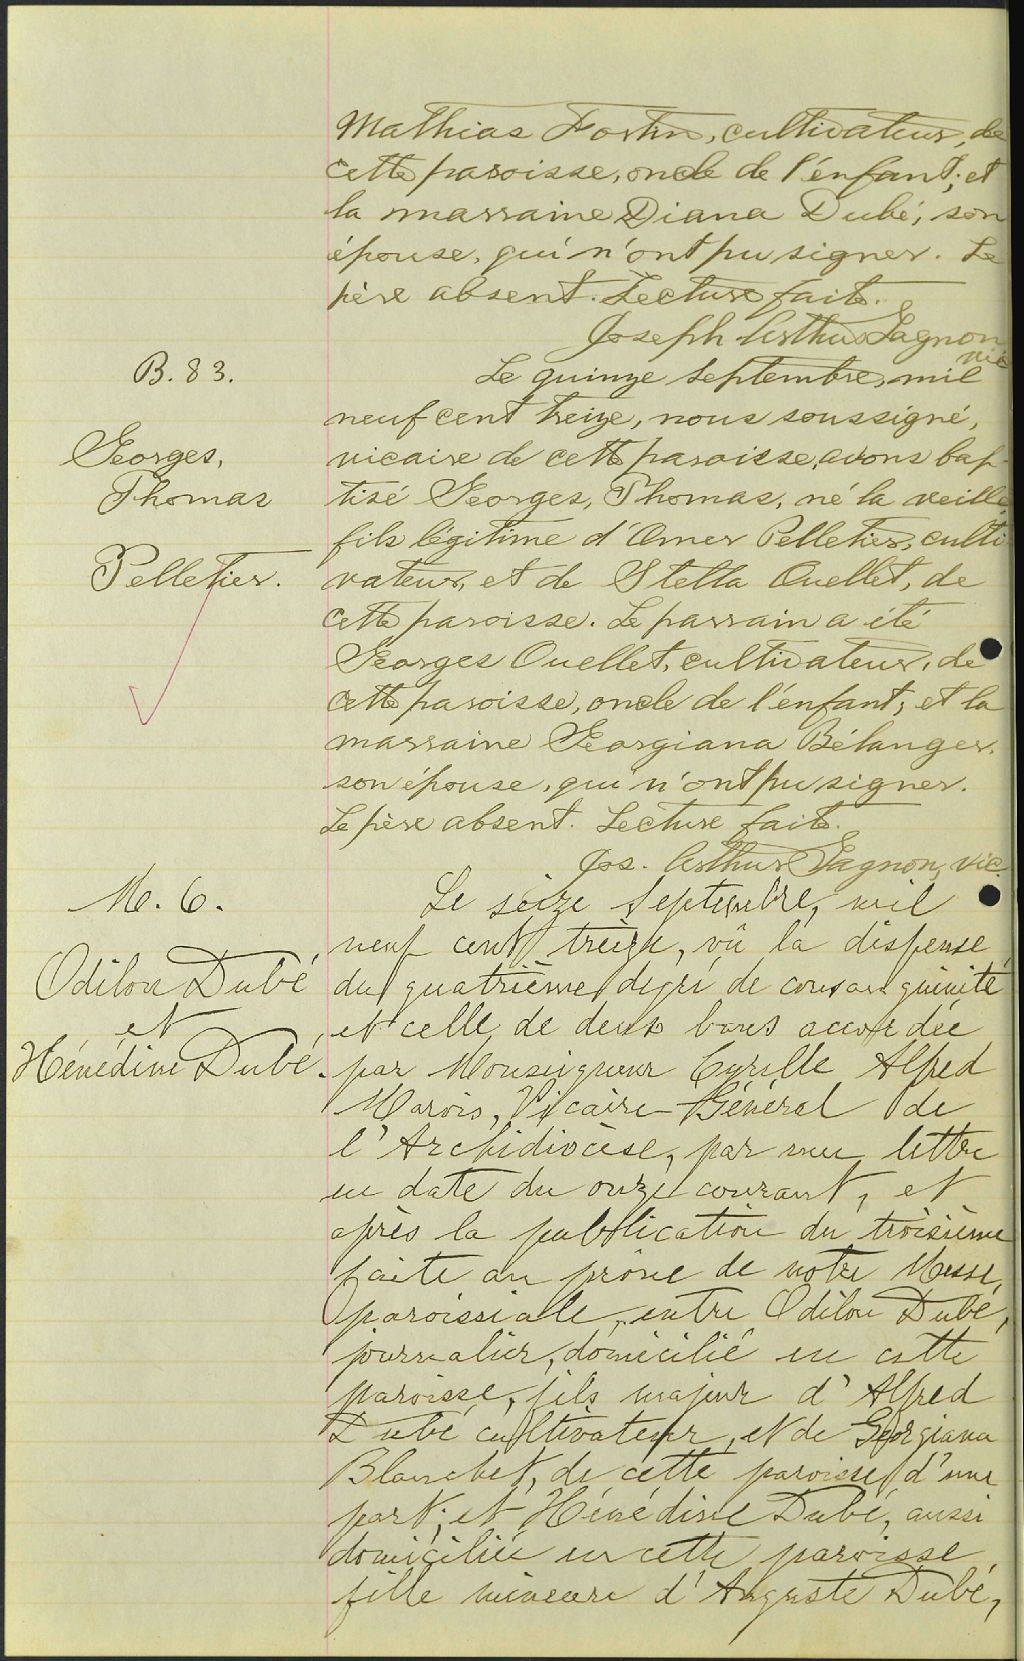 Mathias Fortin, cultivateur, de
cette paroisse, oncle de l'enfant; et
la marraine Diana Dubé, son
épouse, qui n'ont pu signer. Le
père absent. Lecture faite.
Joseph Arthur Gagnon
vic.
B. 83.
Georges,
Thomas
Pelletier.
Le quinze septembre, mil
neuf cent treize, nous soussigné,
vicaire de cette paroisse, avons bap-
tisé Georges, Thomas, né la veille,
fils légitime d'Omer Pelletier, culti-
vateur, et de Stella Ouellet, de
cette paroisse. Le parrain a été
Georges Ouellet, cultivateur, de
cette paroisse, oncle de l'enfant; et la
marraine Georgiana Bélanger,
son épouse, qui n'ont pu signer.
Le père absent. Lecture faite.
Jos. Arthur Gagnon, vic.
M. 6.
Odilon Dubé
et
Hénédine Dubé.
Le seize septembre, mil
neuf cent treize, vû la dispense
du quatrième degré de consanguinité
et celle de deux bans accordée
par Monseigneur Cyrille Alfred
Marois, Vicaire-Général de
l'Archidiocèse, par une lettre
en date du onze courant, et
après la publication du troisième
faite au prône de notre Messe
paroissiale, entre Odilon Dubé,
journalier, domicilié en cette
paroisse, fils majeur d'Alfred
Dubé cultivateur, et de Georgiana
Blanchet, de cette paroisse d'une
part; et Hénédine Dubé, aussi
domiciliée en cette paroisse,
fille mineure d'Auguste Dubé,